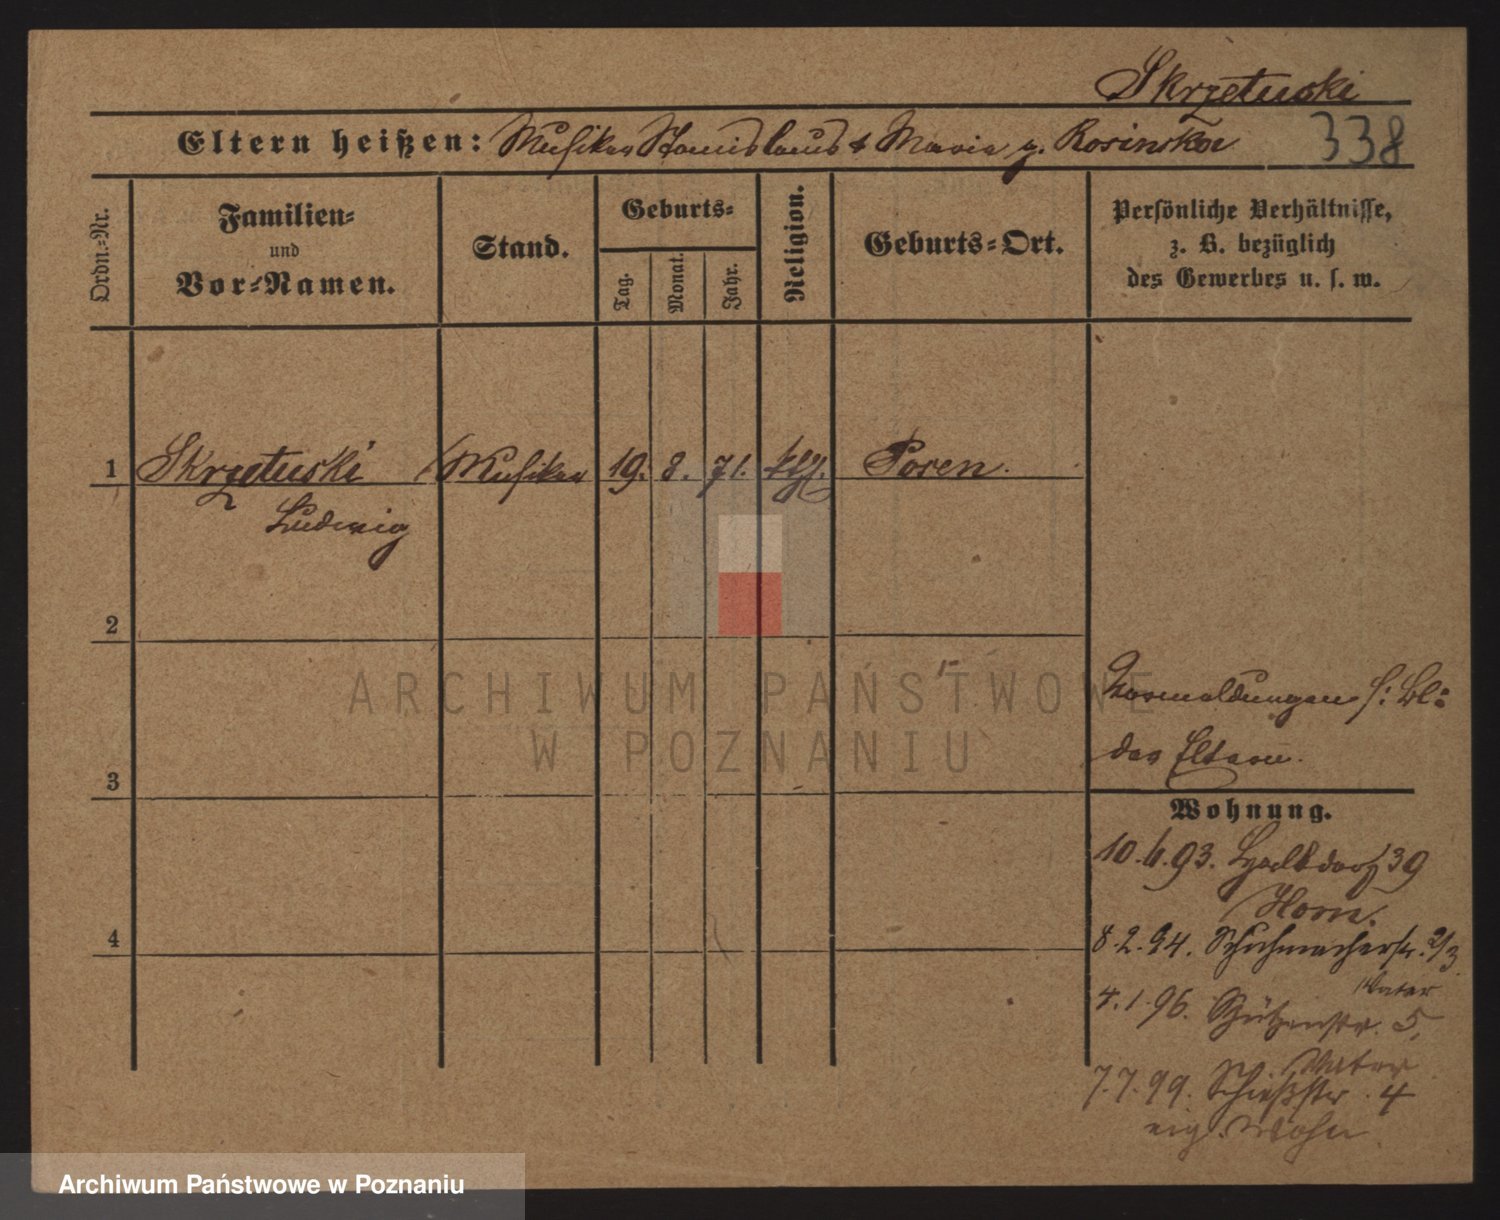 Skrzetuski
338
Eltern heißen: Musiker Stanislaus & Maria g. Rosinska
Ordn.=Nr.
Familien=
und
Vor=Namen.
Stand.
Geburts=
Tag.
Monat.
Jahr.
Religion.
Geburts=Ort.
Persönliche Verhältnisse,
z. B. bezüglich
des Gewerbes u. s. w.
1 Skrzetuski Musiker 19. 8. 71. kth. Posen.
Ludwig
2
ARCHIWUM PAŃSTWOWE
W POZNANIU
Vormeldungen s. Bl:
der Eltern.
3
Wohnung.
10.6.93. 39
Horn.
4
8.2.94. Schuhmacherstr. 2/3
Vater
4.1.96. Schützenstr. 5,
Vater
7.7.99. Schießstr. 4
eig. Wohn
Archiwum Państwowe w Poznaniu